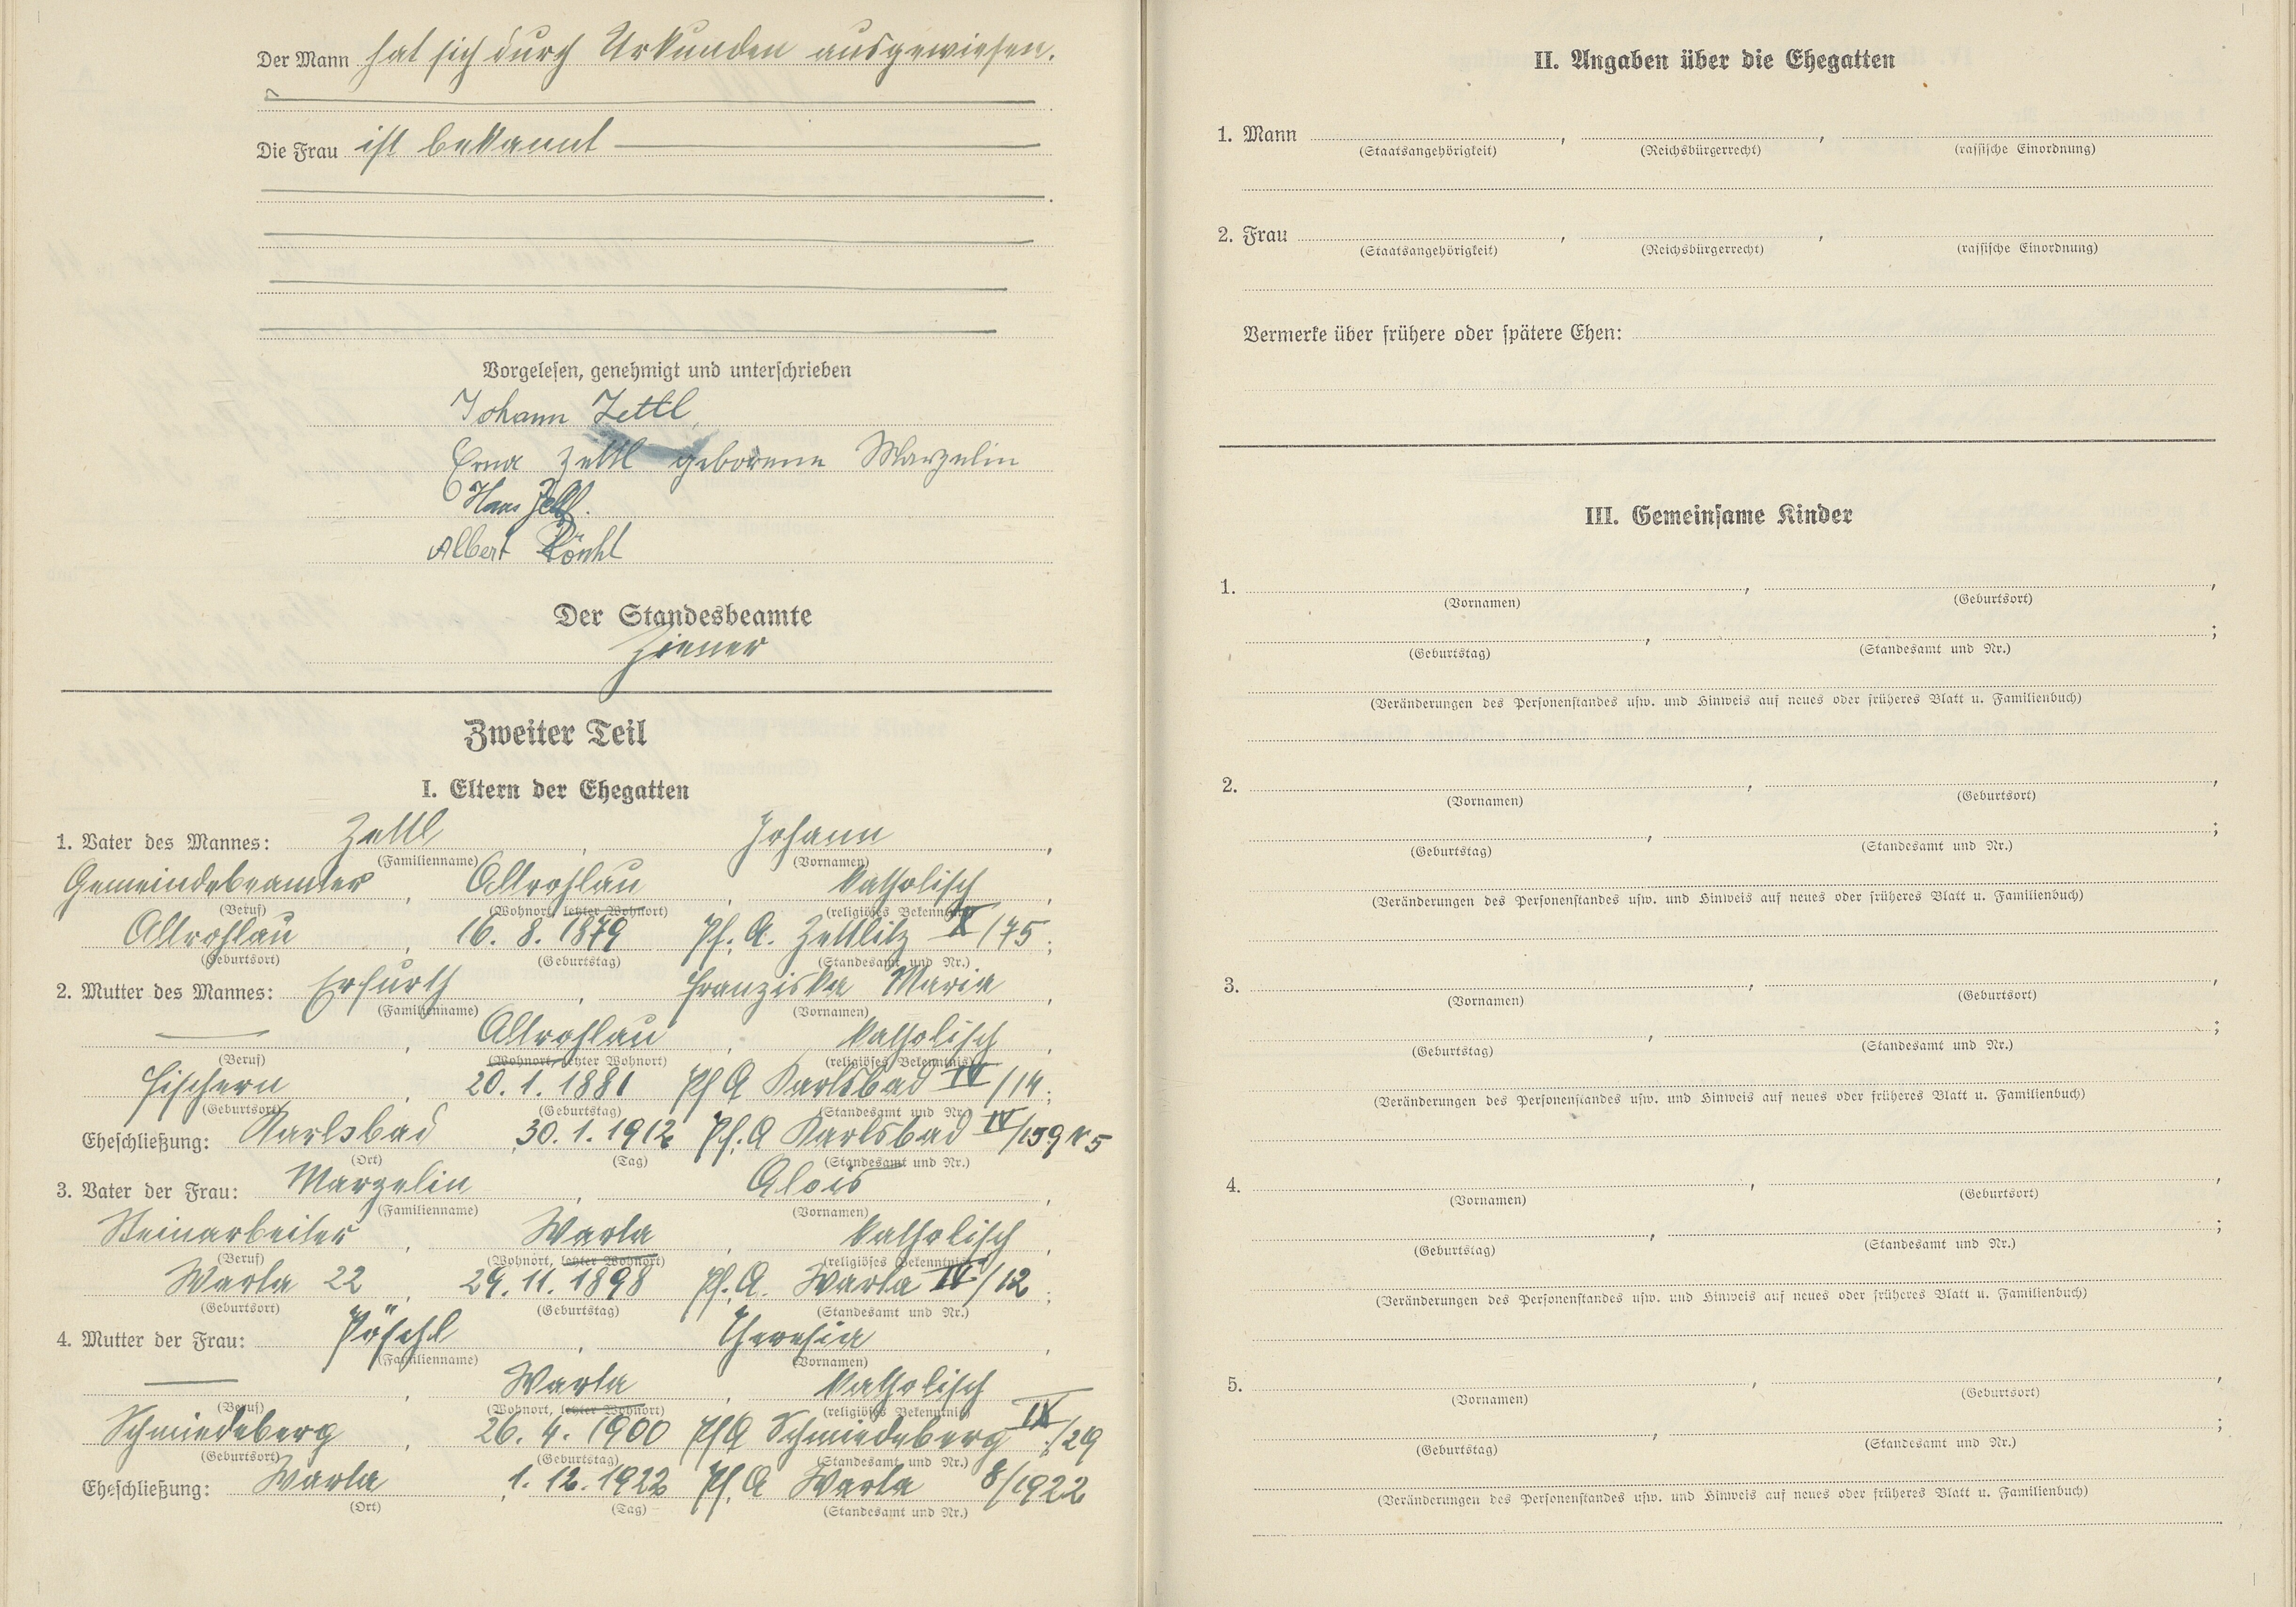 Der Mann hat sich durch Urkunden ausgewiesen.
Die Frau ist bekannt
Vorgelesen, genehmigt und unterschrieben
Johann Zettl,
Erna Zettl geborene Marzelin
Hans Zettl.
Albert
Der Standesbeamte
Ziener
Zweiter Teil
I. Eltern der Ehegatten
1. Vater des Mannes: Zettl, Johann,
(Familienname) (Vornamen)
Gemeindebeamter, Altrohlau, katholisch,
(Beruf) (Wohnort, letzter Wohnort) (religiöses Bekenntnis)
Altrohlau, 16. 8. 1879 Pf. A. Zettlitz X/75;
(Geburtsort) (Geburtstag) (Standesamt und Nr.)
2. Mutter des Mannes: Erfurth, Franziska Maria,
(Familienname) (Vornamen)
—, Altrohlau, katholisch,
(Beruf) (Wohnort, letzter Wohnort) (religiöses Bekenntnis)
Fischern, 20. 1. 1881 Pf A Karlsbad IV/14;
(Geburtsort) (Geburtstag) (Standesamt und Nr.)
Eheschließung: Karlsbad, 30. 1. 1912 Pf. A Karlsbad IV/159 N 5
(Ort) (Tag) (Standesamt und Nr.)
3. Vater der Frau: Marzelin, Alois,
(Familienname) (Vornamen)
Steinarbeiter, Warta, katholisch,
(Beruf) (Wohnort, letzter Wohnort) (religiöses Bekenntnis)
Warta 22, 29. 11. 1898 Pf. A. Warta IV/12;
(Geburtsort) (Geburtstag) (Standesamt und Nr.)
4. Mutter der Frau: Pöschl, Theresia,
(Familienname) (Vornamen)
—, Warta, katholisch
(Beruf) (Wohnort, letzter Wohnort) (religiöses Bekenntnis)
Schmiedeberg, 26. 4. 1900 Pf A Schmiedeberg IX/29;
(Geburtsort) (Geburtstag) (Standesamt und Nr.)
Eheschließung: Warta, 1. 12. 1922 Pf. A Warta 8/1922
(Ort) (Tag) (Standesamt und Nr.)
II. Angaben über die Ehegatten
1. Mann , ,
(Staatsangehörigkeit) (Reichsbürgerrecht) (rassische Einordnung)
2. Frau , ,
(Staatsangehörigkeit) (Reichsbürgerrecht) (rassische Einordnung)
Vermerke über frühere oder spätere Ehen:
III. Gemeinsame Kinder
1. , ,
(Vornamen) (Geburtsort)
, ;
(Geburtstag) (Standesamt und Nr.)
(Veränderungen des Personenstandes usw. und Hinweis auf neues oder früheres Blatt u. Familienbuch)
2. , ,
(Vornamen) (Geburtsort)
, ;
(Geburtstag) (Standesamt und Nr.)
(Veränderungen des Personenstandes usw. und Hinweis auf neues oder früheres Blatt u. Familienbuch)
3. , ,
(Vornamen) (Geburtsort)
, ;
(Geburtstag) (Standesamt und Nr.)
(Veränderungen des Personenstandes usw. und Hinweis auf neues oder früheres Blatt u. Familienbuch)
4. , ,
(Vornamen) (Geburtsort)
, ;
(Geburtstag) (Standesamt und Nr.)
(Veränderungen des Personenstandes usw. und Hinweis auf neues oder früheres Blatt u. Familienbuch)
5. , ,
(Vornamen) (Geburtsort)
, ;
(Geburtstag) (Standesamt und Nr.)
(Veränderungen des Personenstandes usw. und Hinweis auf neues oder früheres Blatt u. Familienbuch)